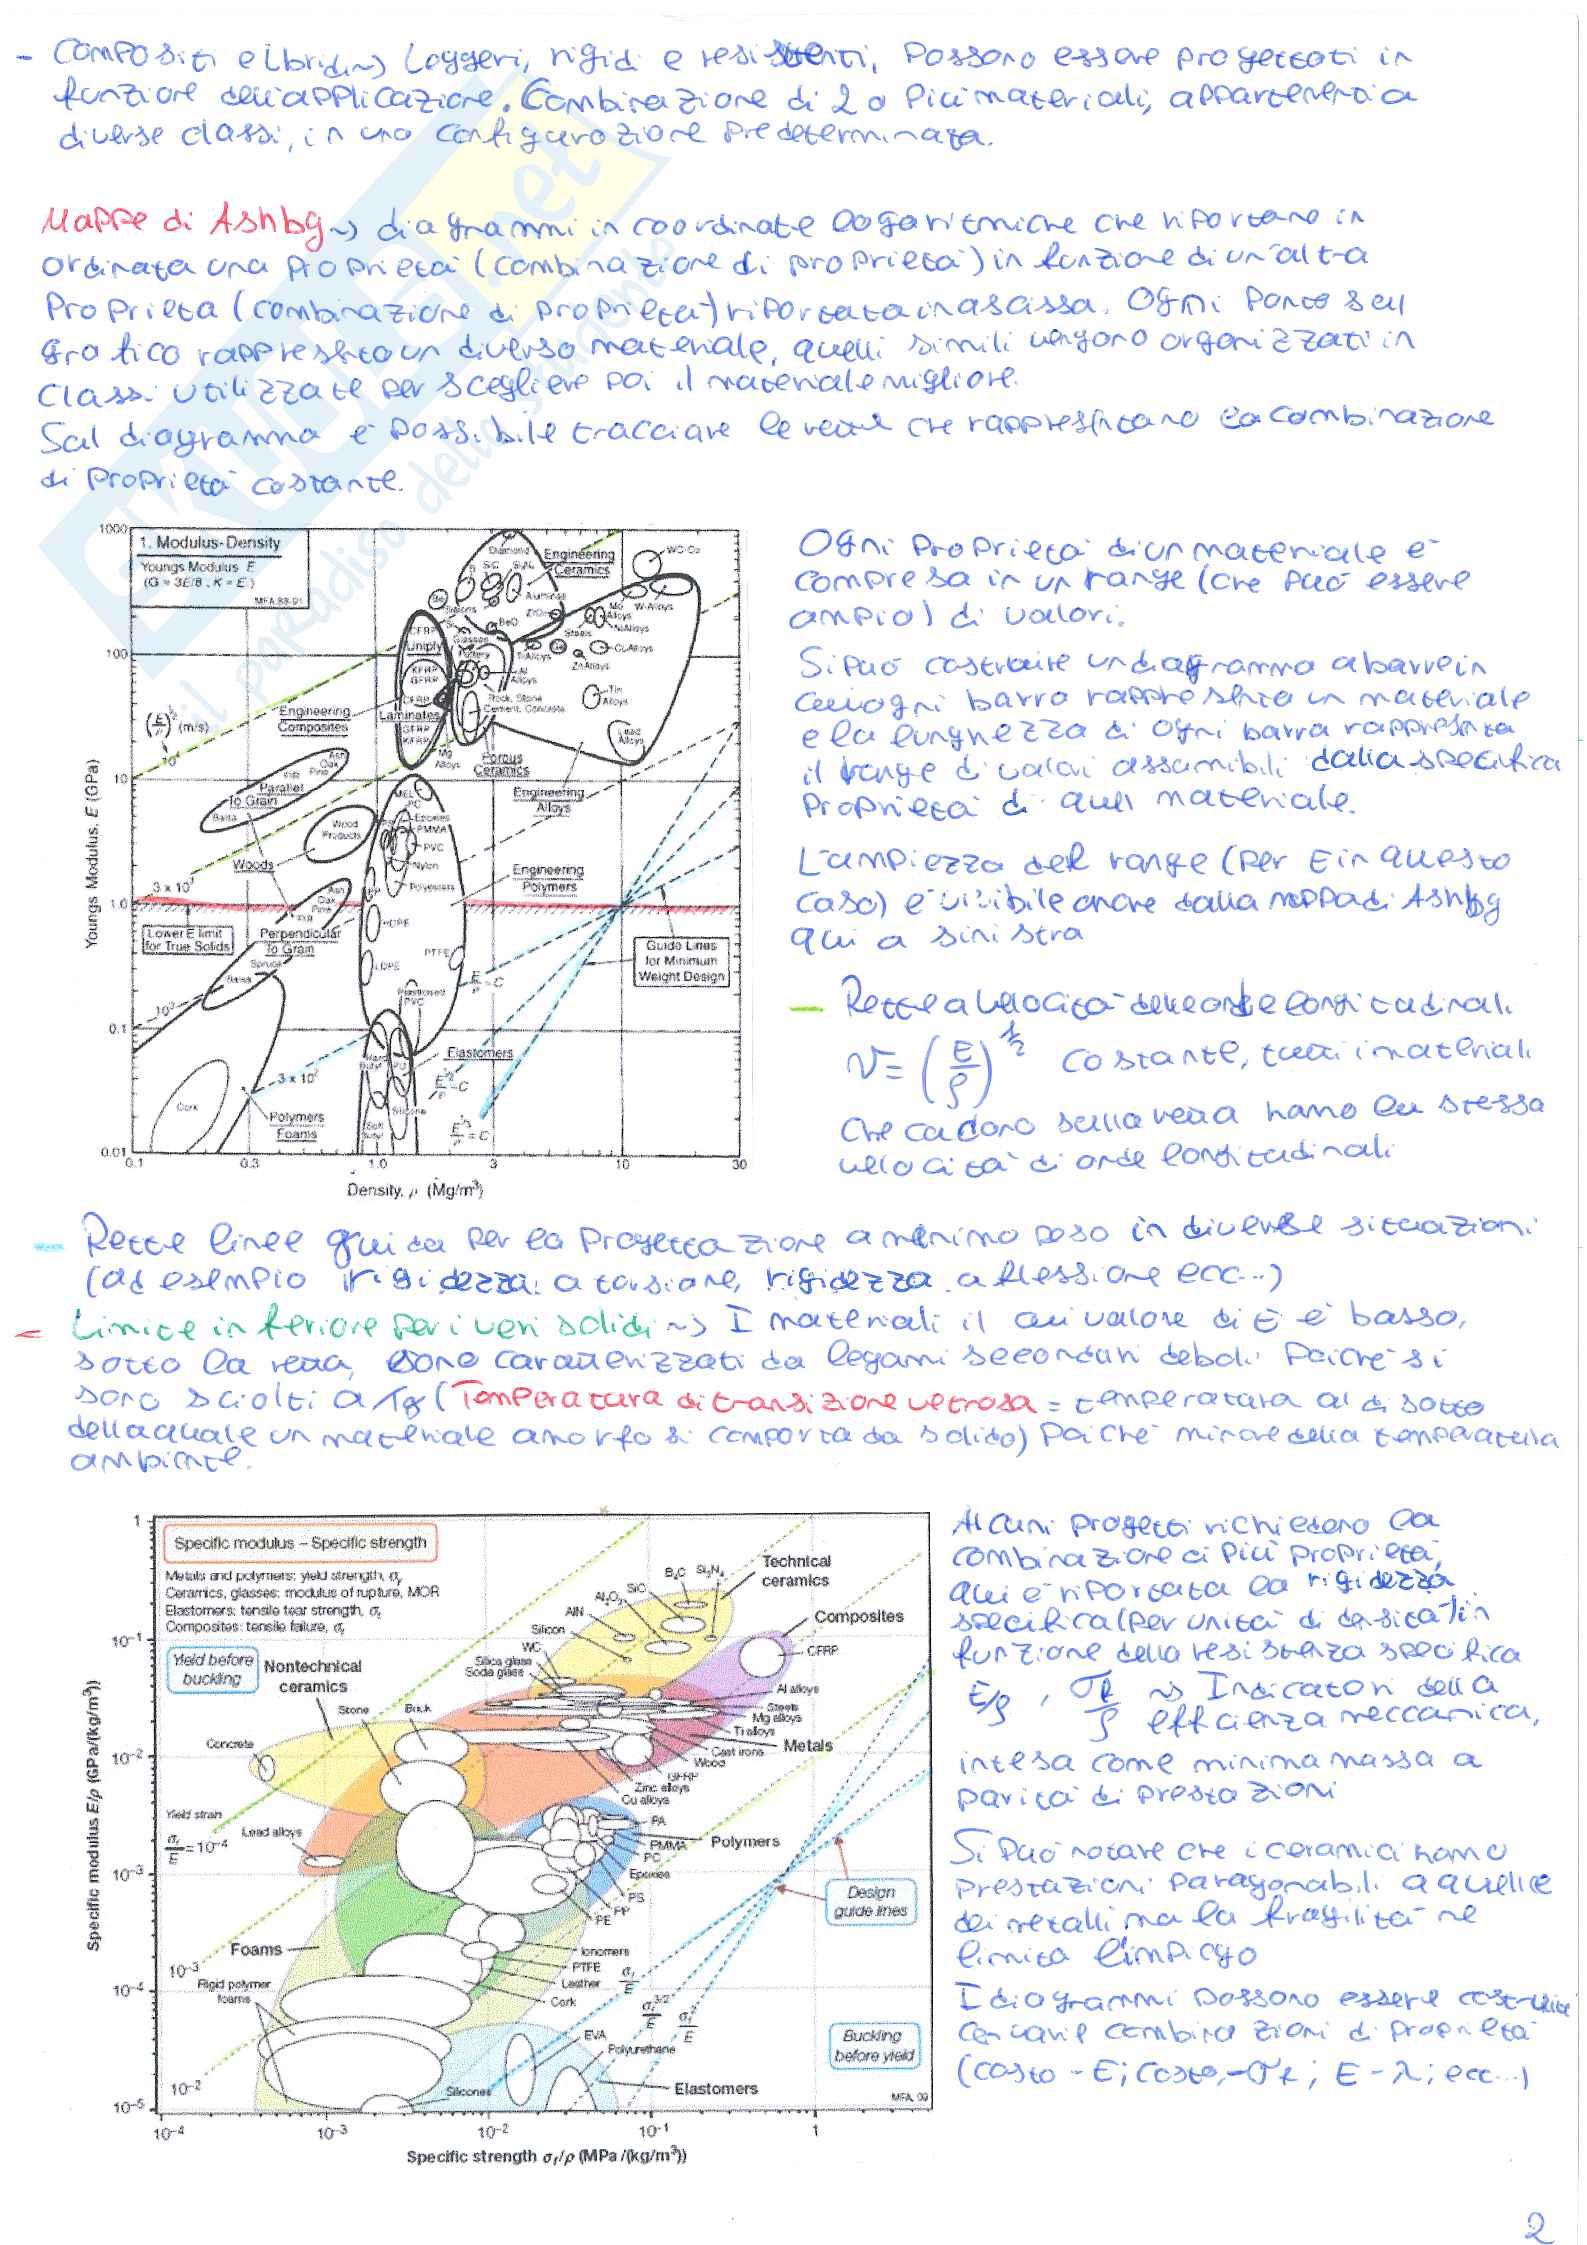 - Compositi e Ibridi ~> Leggeri, rigidi e resistenti, possono essere progettati in
funzione dell'applicazione. Combinazione di 2 o più materiali, appartenenti a
diverse classi, in una configurazione predeterminata.
Mappe di Ashby ~> diagrammi in coordinate logaritmiche che riportano in
ordinata una proprietà (combinazione di proprietà) in funzione di un'altra
proprietà (combinazione di proprietà) riportata in ascissa. Ogni punto sul
grafico rappresenta un diverso materiale, quelli simili vengono organizzati in
classi utilizzate per scegliere poi il materiale migliore.
Sul diagramma è possibile tracciare le rette che rappresentano la combinazione
di proprietà costante.
1. Modulus-Density
Youngs Modulus E
(G = 3E/8, K = E)
MFA 88-91
Youngs Modulus, E (GPa)
1000
100
10
1.0
0.1
0.01
0.1
0.3
1.0
3
10
30
Density, ρ (Mg/m³)
Diamond
Engineering
Ceramics
WC-Co
W-Alloys
Steels
Engineering
Composites
Laminates
Uniply
CFRP
GFRP
KFRP
BeO
Glasses
Pottery
Rock, Stone
Cement, Concrete
Tin
Alloys
Lead
Alloys
Mg
Alloys
Porous
Ceramics
Engineering
Alloys
Parallel
To Grain
Balsa
Ash
Oak
Pine
Fir
Wood
Products
Woods
MEL
PC
Epoxies
PMMA
PVC
Nylon
Polyesters
Engineering
Polymers
HDPE
LDPE
PTFE
Plasticised
PVC
Lower E limit
for True Solids
Perpendicular
To Grain
Spruce
Balsa
Guide Lines
for Minimum
Weight Design
Elastomers
Hard
Butyl
PU
Silicone
Soft
Butyl
Cork
Polymers
Foams
(E/ρ)^½ (m/s)
10⁴
3 x 10³
10³
3 x 10²
E/ρ = C
E^1/2/ρ = C
E^1/3/ρ = C
Ogni proprietà di un materiale è
compresa in un range (che può essere
ampio) di valori.
Si può costruire un diagramma a barre in
cui ogni barra rappresenta un materiale
e la lunghezza di ogni barra rappresenta
il range di valori assumibili dalla specifica
proprietà di quel materiale.
L'ampiezza del range (per E in questo
caso) è visibile anche dalla mappa di Ashby
qui a sinistra
- Rette a velocità delle onde longitudinali
v = (E/ρ)^½ costante, tutti i materiali
che cadono sulla retta hanno la stessa
velocità di onde longitudinali
- Rette linee guida per la progettazione a minimo peso in diverse situazioni
(ad esempio rigidezza a torsione, rigidezza a flessione ecc...)
- Limite inferiore per i veri solidi ~> I materiali il cui valore di E è basso,
sotto la retta, sono caratterizzati da legami secondari deboli poichè si
sono sciolti a Tg (Temperatura di transizione vetrosa = temperatura al di sotto
della quale un materiale amorfo si comporta da solido) poichè minore della temperatura
ambiente.
Specific modulus – Specific strength
Metals and polymers: yield strength, σy
Ceramics, glasses: modulus of rupture, MOR
Elastomers: tensile tear strength, σt
Composites: tensile failure, σt
Yield before
buckling
Nontechnical
ceramics
Stone
Brick
Concrete
Yield strain
σf/E = 10⁻⁴
Lead alloys
Silica glass
Soda glass
WC
Silicon
AlN
Al₂O₃
SiC
B₄C
Si₃N₄
Technical
ceramics
Composites
CFRP
Al alloys
Steels
Mg alloys
Ti alloys
Metals
Cast irons
Wood
GFRP
Zinc alloys
Cu alloys
PA
PMMA
Polymers
PC
Epoxies
PS
PP
PE
Design
guide lines
Foams
Rigid polymer
foams
10⁻³
10⁻²
Ionomers
PTFE
Leather
Cork
σf/E
σf^3/2/E
σf²/E
EVA
Polyurethane
Silicones
Elastomers
Buckling
before yield
MFA, 09
Specific modulus E/ρ (GPa/(kg/m³))
1
10⁻¹
10⁻²
10⁻³
10⁻⁴
10⁻⁵
10⁻⁴
10⁻³
10⁻²
10⁻¹
1
Specific strength σf/ρ (MPa/(kg/m³))
Alcuni progetti richiedono la
combinazione di più proprietà,
qui è riportata la rigidezza
specifica (per unità di densità) in
funzione della resistenza specifica
E/ρ , σf/ρ ~> Indicatori della
efficienza meccanica,
intesa come minima massa a
parità di prestazioni
Si può notare che i ceramici hanno
prestazioni paragonabili a quelle
dei metalli ma la fragilità ne
limita l'impiego
I diagrammi possono essere costruiti
con varie combinazioni di proprietà
(costo - E; costo - σf; E - λ; ecc...)
2
SKUOLA.net
il paradiso dello studente